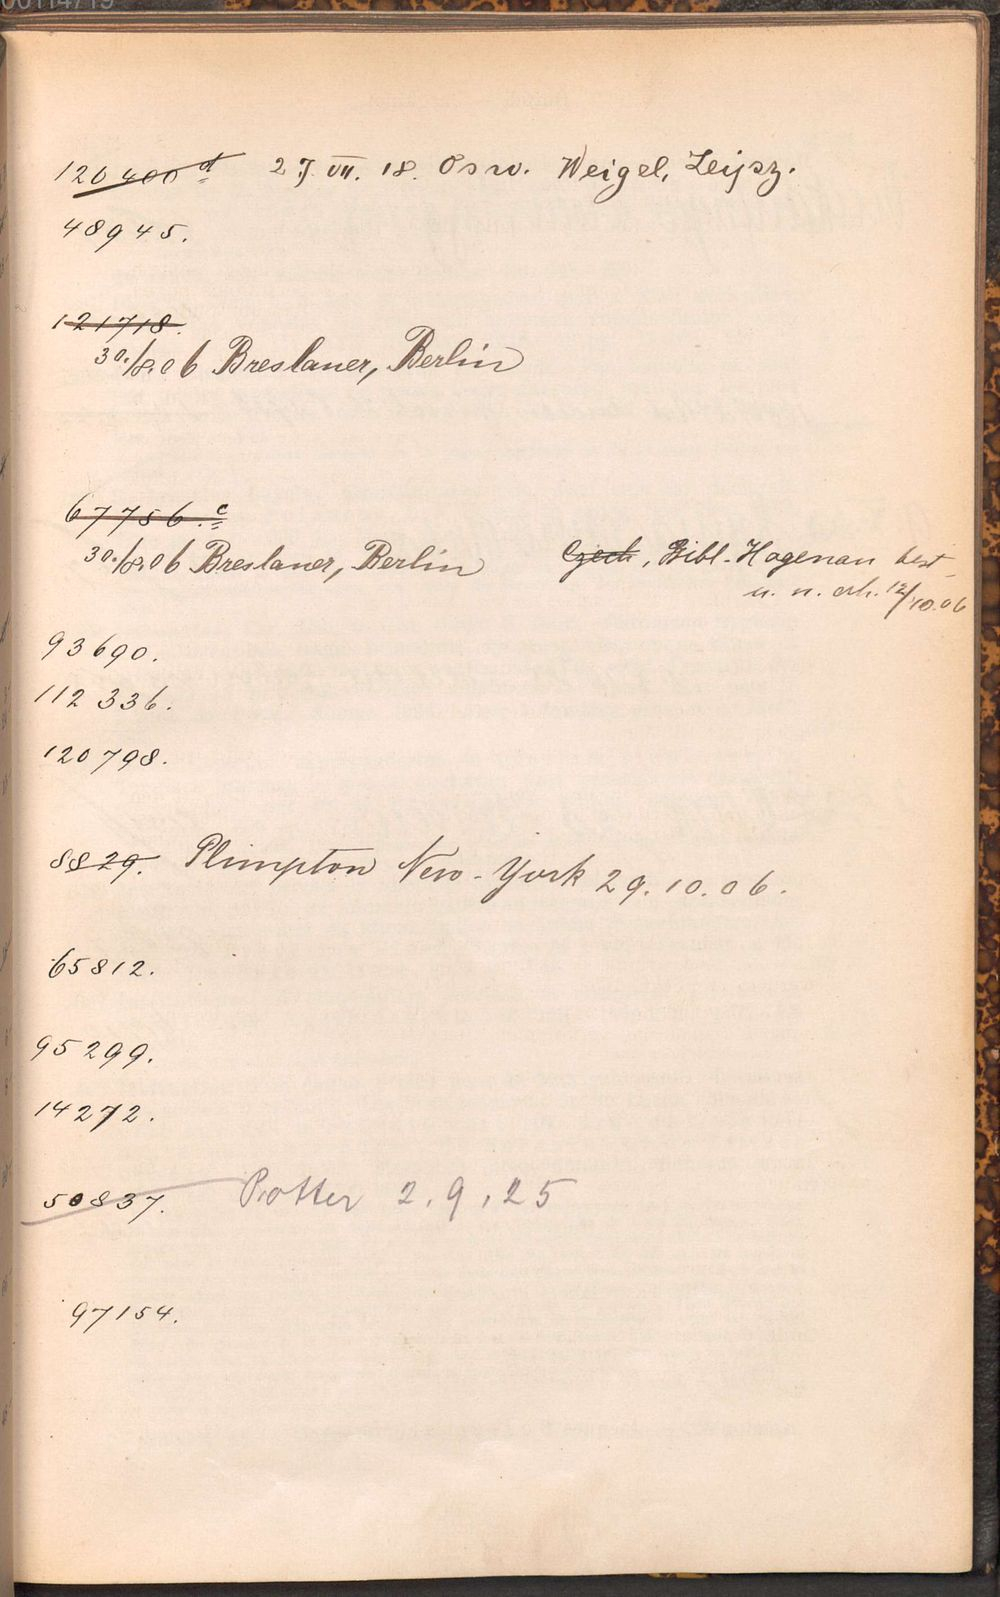 00114719
120400 d 27. VII. 18. Osw. Weigel, Leipz.
48945.
121718.
30./8.06 Breslauer, Berlin
67756. c
30./8.06 Breslauer, Berlin Czech, Bibl. Hagenau best
u. n. erh. 12/10.06
93690.
112336.
120798.
8829. Plimpton New-York 29.10.06.
65812.
95299.
14272.
50837. Potter 2.9.25
97154.